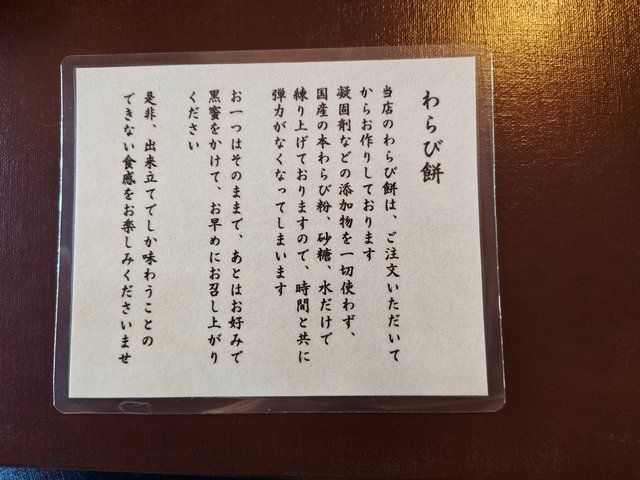 わらび餅
当店のわらび餅は、ご注文いただいて
からお作りしております
凝固剤などの添加物を一切使わず、
国産の本わらび粉、砂糖、水だけで
練り上げておりますので、時間と共に
弾力がなくなってしまいます
お一つはそのままで、あとはお好みで
黒蜜をかけて、お早めにお召し上がり
ください
是非、出来立てでしか味わうことの
できない食感をお楽しみくださいませ